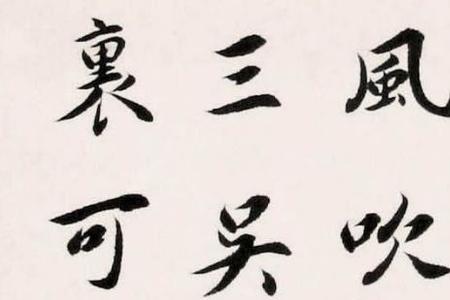 風吹
三吳
裏可